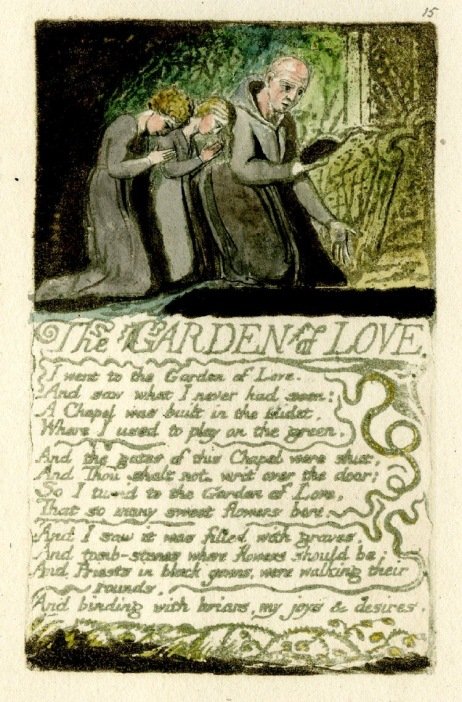 15
The GARDEN of LOVE
I went to the Garden of Love.
And saw what I never had seen:
A Chapel was built in the midst,
Where I used to play on the green.
And the gates of this Chapel were shut,
And Thou shalt not. writ over the door;
So I turnd to the Garden of Love,
That so many sweet flowers bore.
And I saw it was filled with graves,
And tomb-stones where flowers should be:
And Priests in black gowns, were walking their
rounds,
And binding with briars, my joys & desires.